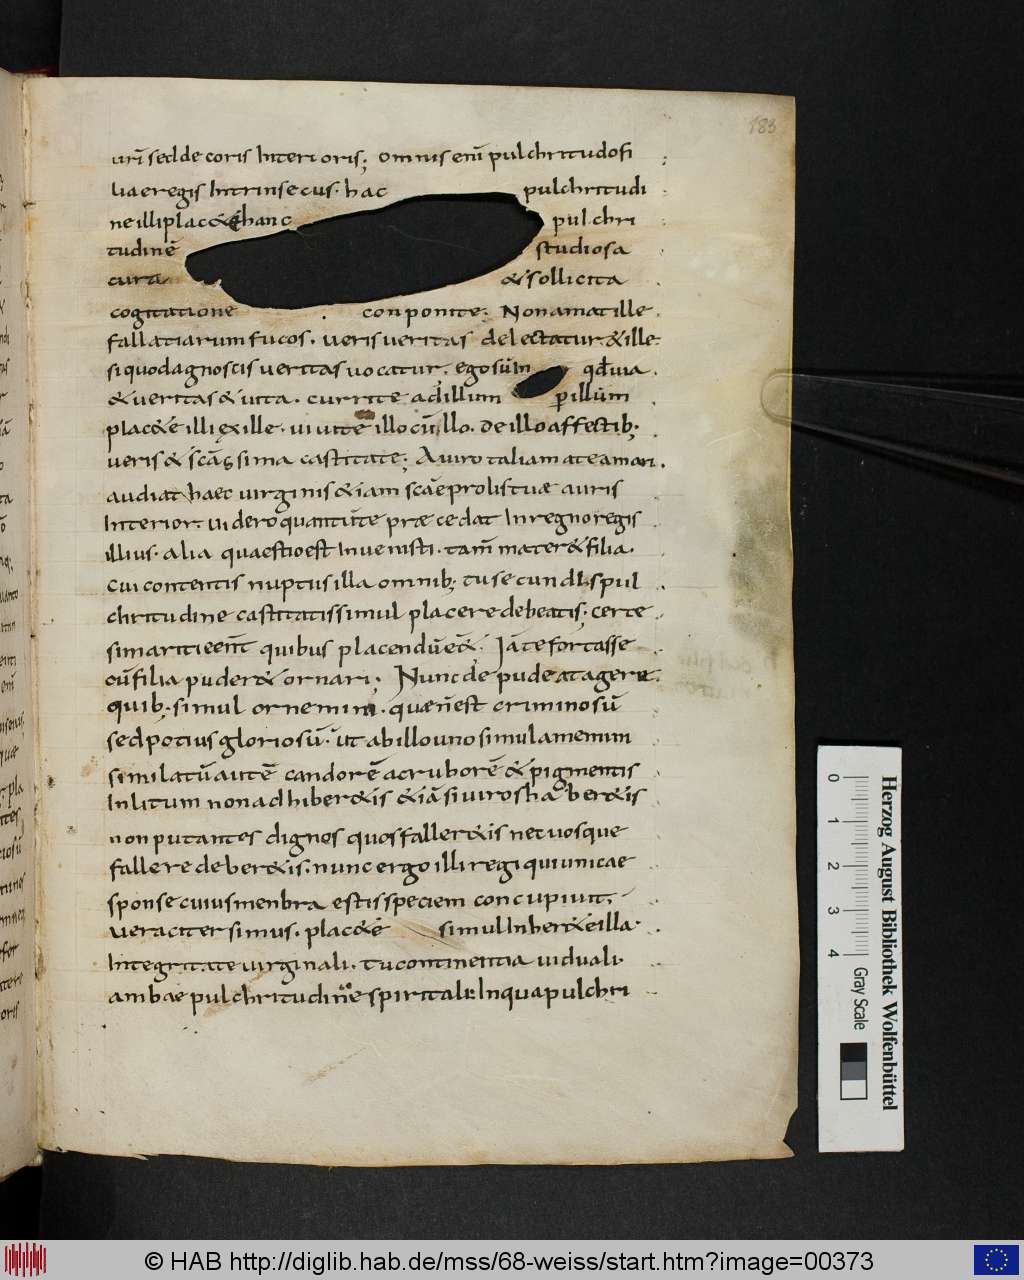 183
uri sed decoris interioris; omnis enī pulchritudo fi
liae regis intrinsecus. hac pulchritudi
ne illi plac& & hanc pulchri
tudinē studiosa
cura & sollicita
cogitatione conponite; Non amat ille
fallatiarum fucos. veris veritas delectatur & ille
si quod agnoscis veritas vocatur. ego sūm qd via.
& veritas & vita. currite ad illum p illum
plac&ē illi ex ille. vivite illo cū illo. de illo affectib;
veris & scāssima castitate; A viro tali amate amari.
audiat haec virginis & iam scāe prolis tuae auris
interior. videro quantū te praecedat in regno regis
illius. alia quaestio est invenisti. tam̄ mater & filia.
cui contentis nuptus illa omnib; tu secundis pul
chritudine castitatis simul placere debeatis; certe
si mariti eent̄ quibus placendū eēt. Iā te fortasse
cū filia puder& ornari; Nunc de pudeat agere
quib; simul ornemini. quae n̄ est criminosū
sed potius gloriosū. ut ab illo uno simul amemini
similatū autē candorē ac ruborē & pigmentis
inlitum non adhiber&is & iā si viros haber&is
non putantes dignos quos faller&is nec vos que
fallere deber&is. nunc ergo illi regi qui unicae
sponse cuius menbra estis speciem concupivit.
veraciter simus. plac&ē simul inher&e illa.
integritate virginali. tu continentia viduali.
ambae pulchritudine spiritali: In qua pulchri
Herzog August Bibliothek Wolfenbüttel
0 1 2 3 4 Gray Scale
© HAB http://diglib.hab.de/mss/68-weiss/start.htm?image=00373